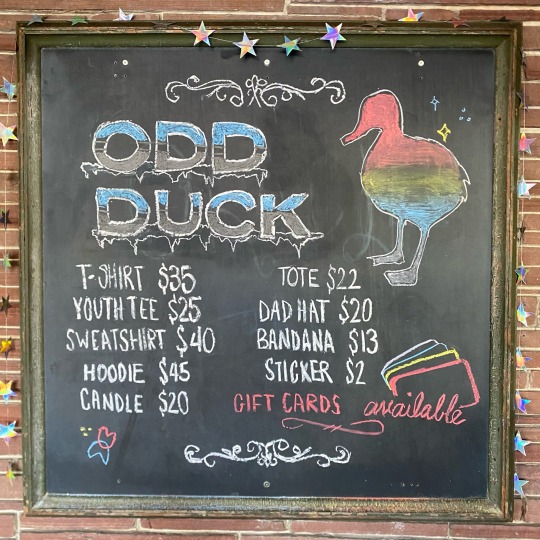 ODD
DUCK
T-SHIRT $35
YOUTH TEE $25
SWEATSHIRT $40
HOODIE $45
CANDLE $20
TOTE $22
DAD HAT $20
BANDANA $13
STICKER $2
GIFT CARDS available